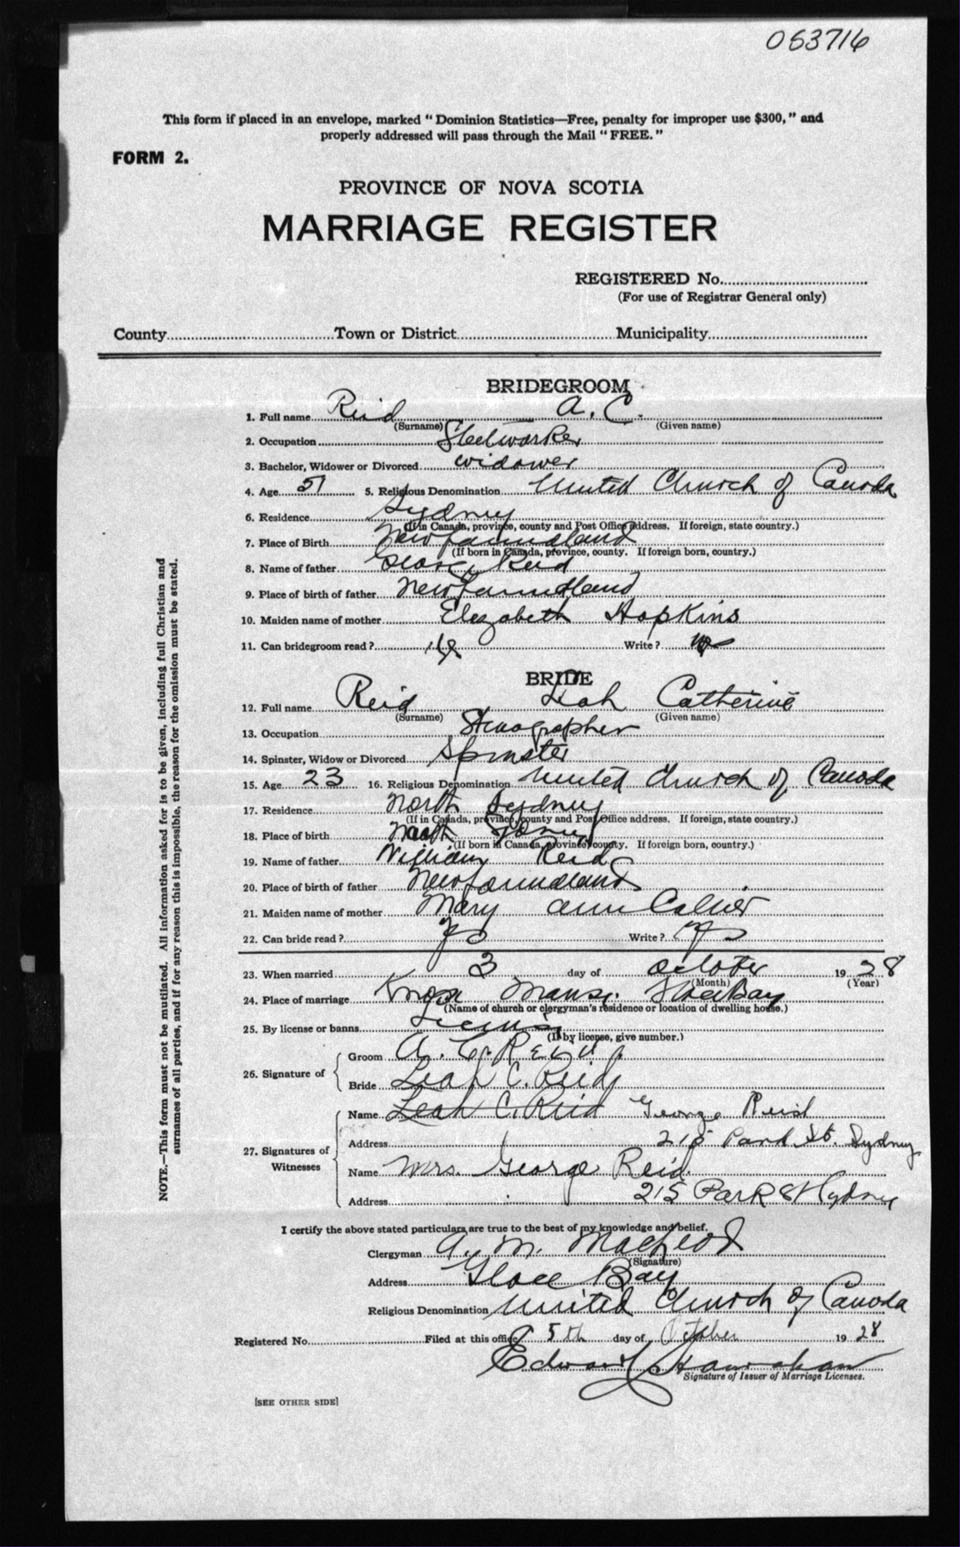 063716
This form if placed in an envelope, marked "Dominion Statistics—Free, penalty for improper use $300," and
properly addressed will pass through the Mail "FREE."
FORM 2.
PROVINCE OF NOVA SCOTIA
MARRIAGE REGISTER
REGISTERED No.
(For use of Registrar General only)
County Town or District Municipality
BRIDEGROOM
1. Full name Reid A. C.
(Surname) (Given name)
2. Occupation Steelworker
3. Bachelor, Widower or Divorced widower
4. Age 51 5. Religious Denomination United Church of Canada
6. Residence Sydney
(If in Canada, province, county and Post Office address. If foreign, state country.)
7. Place of Birth Newfoundland
(If born in Canada, province, county. If foreign born, country.)
8. Name of father George Reid
9. Place of birth of father Newfoundland
10. Maiden name of mother Elezabeth Hopkins
11. Can bridegroom read? Write?
BRIDE
12. Full name Reid Leah Catherine
(Surname) (Given name)
13. Occupation Stenographer
14. Spinster, Widow or Divorced Spinster
15. Age 23 16. Religious Denomination United Church of Canada
17. Residence North Sydney
(If in Canada, province, county and Post Office address. If foreign, state country.)
18. Place of birth North Sydney
(If born in Canada, province, county. If foreign born, country.)
19. Name of father William Reid
20. Place of birth of father Newfoundland
21. Maiden name of mother Mary Ann
22. Can bride read? yes Write? yes
23. When married 3 day of October 1928
(Month) (Year)
24. Place of marriage Knox Manse Glace Bay
(Name of church or clergyman's residence or location of dwelling house.)
25. By license or banns License
(If by license, give number.)
26. Signature of
Groom A. C. Reid
Bride Leah C. Reid
27. Signatures of Witnesses
Name Leah C. Reid George Reid
Address 215 Park St. Sydney
Name Mrs. George Reid
Address 215 Park St Sydney
I certify the above stated particulars are true to the best of my knowledge and belief.
Clergyman A. M. MacLeod
(Signature)
Address Glace Bay
Religious Denomination United Church of Canada
Registered No. Filed at this office 5th day of October 1928
Edward Hanrahan
Signature of Issuer of Marriage Licenses.
[SEE OTHER SIDE]
NOTE.—This form must not be mutilated. All information asked for is to be given, including full Christian and
surnames of all parties, and if for any reason this is impossible, the reason for the omission must be stated.